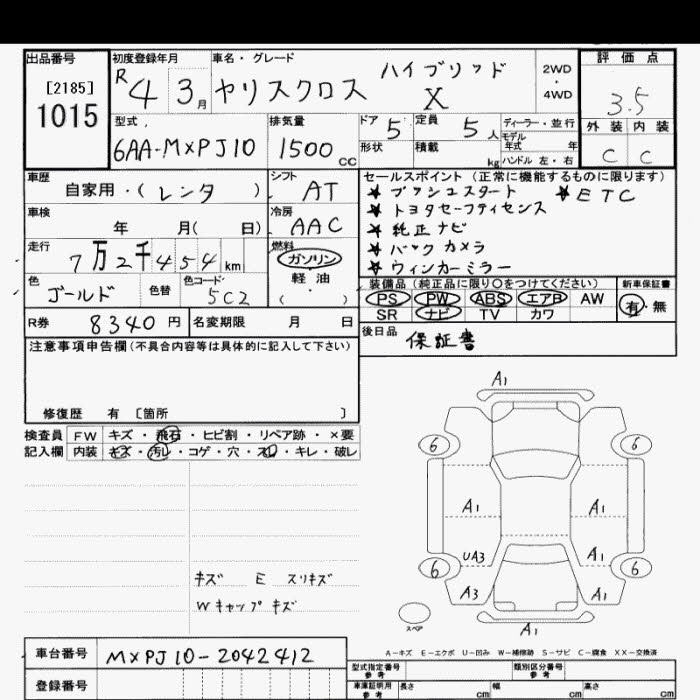 出品番号 初度登録年月 車名・グレード 評価点
[2185] R 4 3月 ヤリスクロス ハイブリッド X 2WD・4WD 3.5
1015
型式 排気量 ドア 5 定員 5人 ディーラー・並行 外装 内装
6AA-MXPJ10 1500CC 形状 積載 kg モデル年式 年 C C
ハンドル 左・右
車歴 シフト セールスポイント (正常に機能するものに限ります)
自家用・(レンタ) AT ★プッシュスタート ★ETC
車検 冷房 ★トヨタセーフティセンス
年 月(日) AAC ★純正ナビ
走行 燃料 ★バックカメラ
7万2千454km ガソリン ★ウィンカーミラー
軽油
( )
色 色替 色コード 装備品 (純正品に限り○をつけてください) 新車保証書
ゴールド 5C2 PS PW ABS エアB AW 有・無
SR ナビ TV カワ
R券 8340円 名変期限 月 日 後日品 保証書
注意事項申告欄(不具合内容等は具体的に記入して下さい)
修復歴 有 〔箇所 〕
検査員 FW キズ・飛石・ヒビ割・リペア跡・×要
記入欄 内装 キズ・汚レ・コゲ・穴・スレ・キレ・破レ
A1
6 6
A1 A1
UA3 A1
6 6
A3 A1
キズ E スリキズ
Wキャップキズ
スペア
A1
A-キズ E-エクボ U-凹み W-補修跡 S-サビ C-腐食 XX-交換済
車台番号 MXPJ10-2042412
登録番号
型式指定番号 参考 類別区分番号 参考
車庫証明用 参考 長さ cm 幅 cm 高さ cm